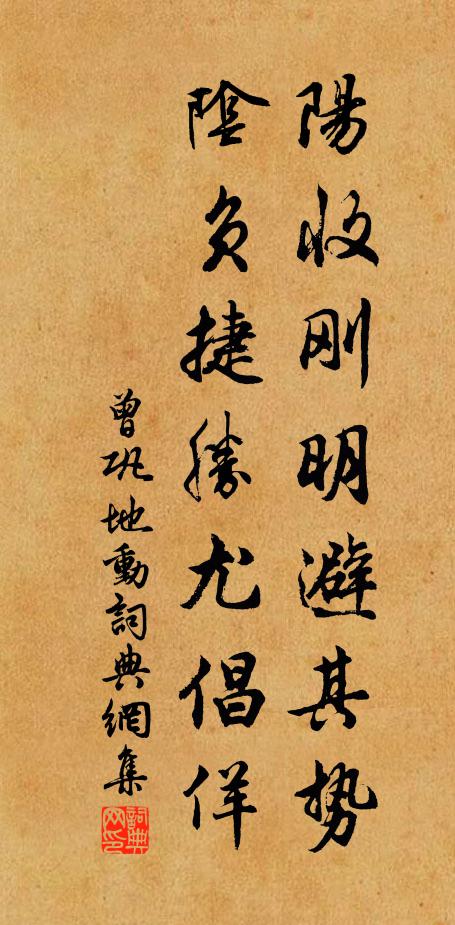 陽收刚明避其势
陰負捷勝尤倡佯
曾巩地動詞典網集
詞典网印